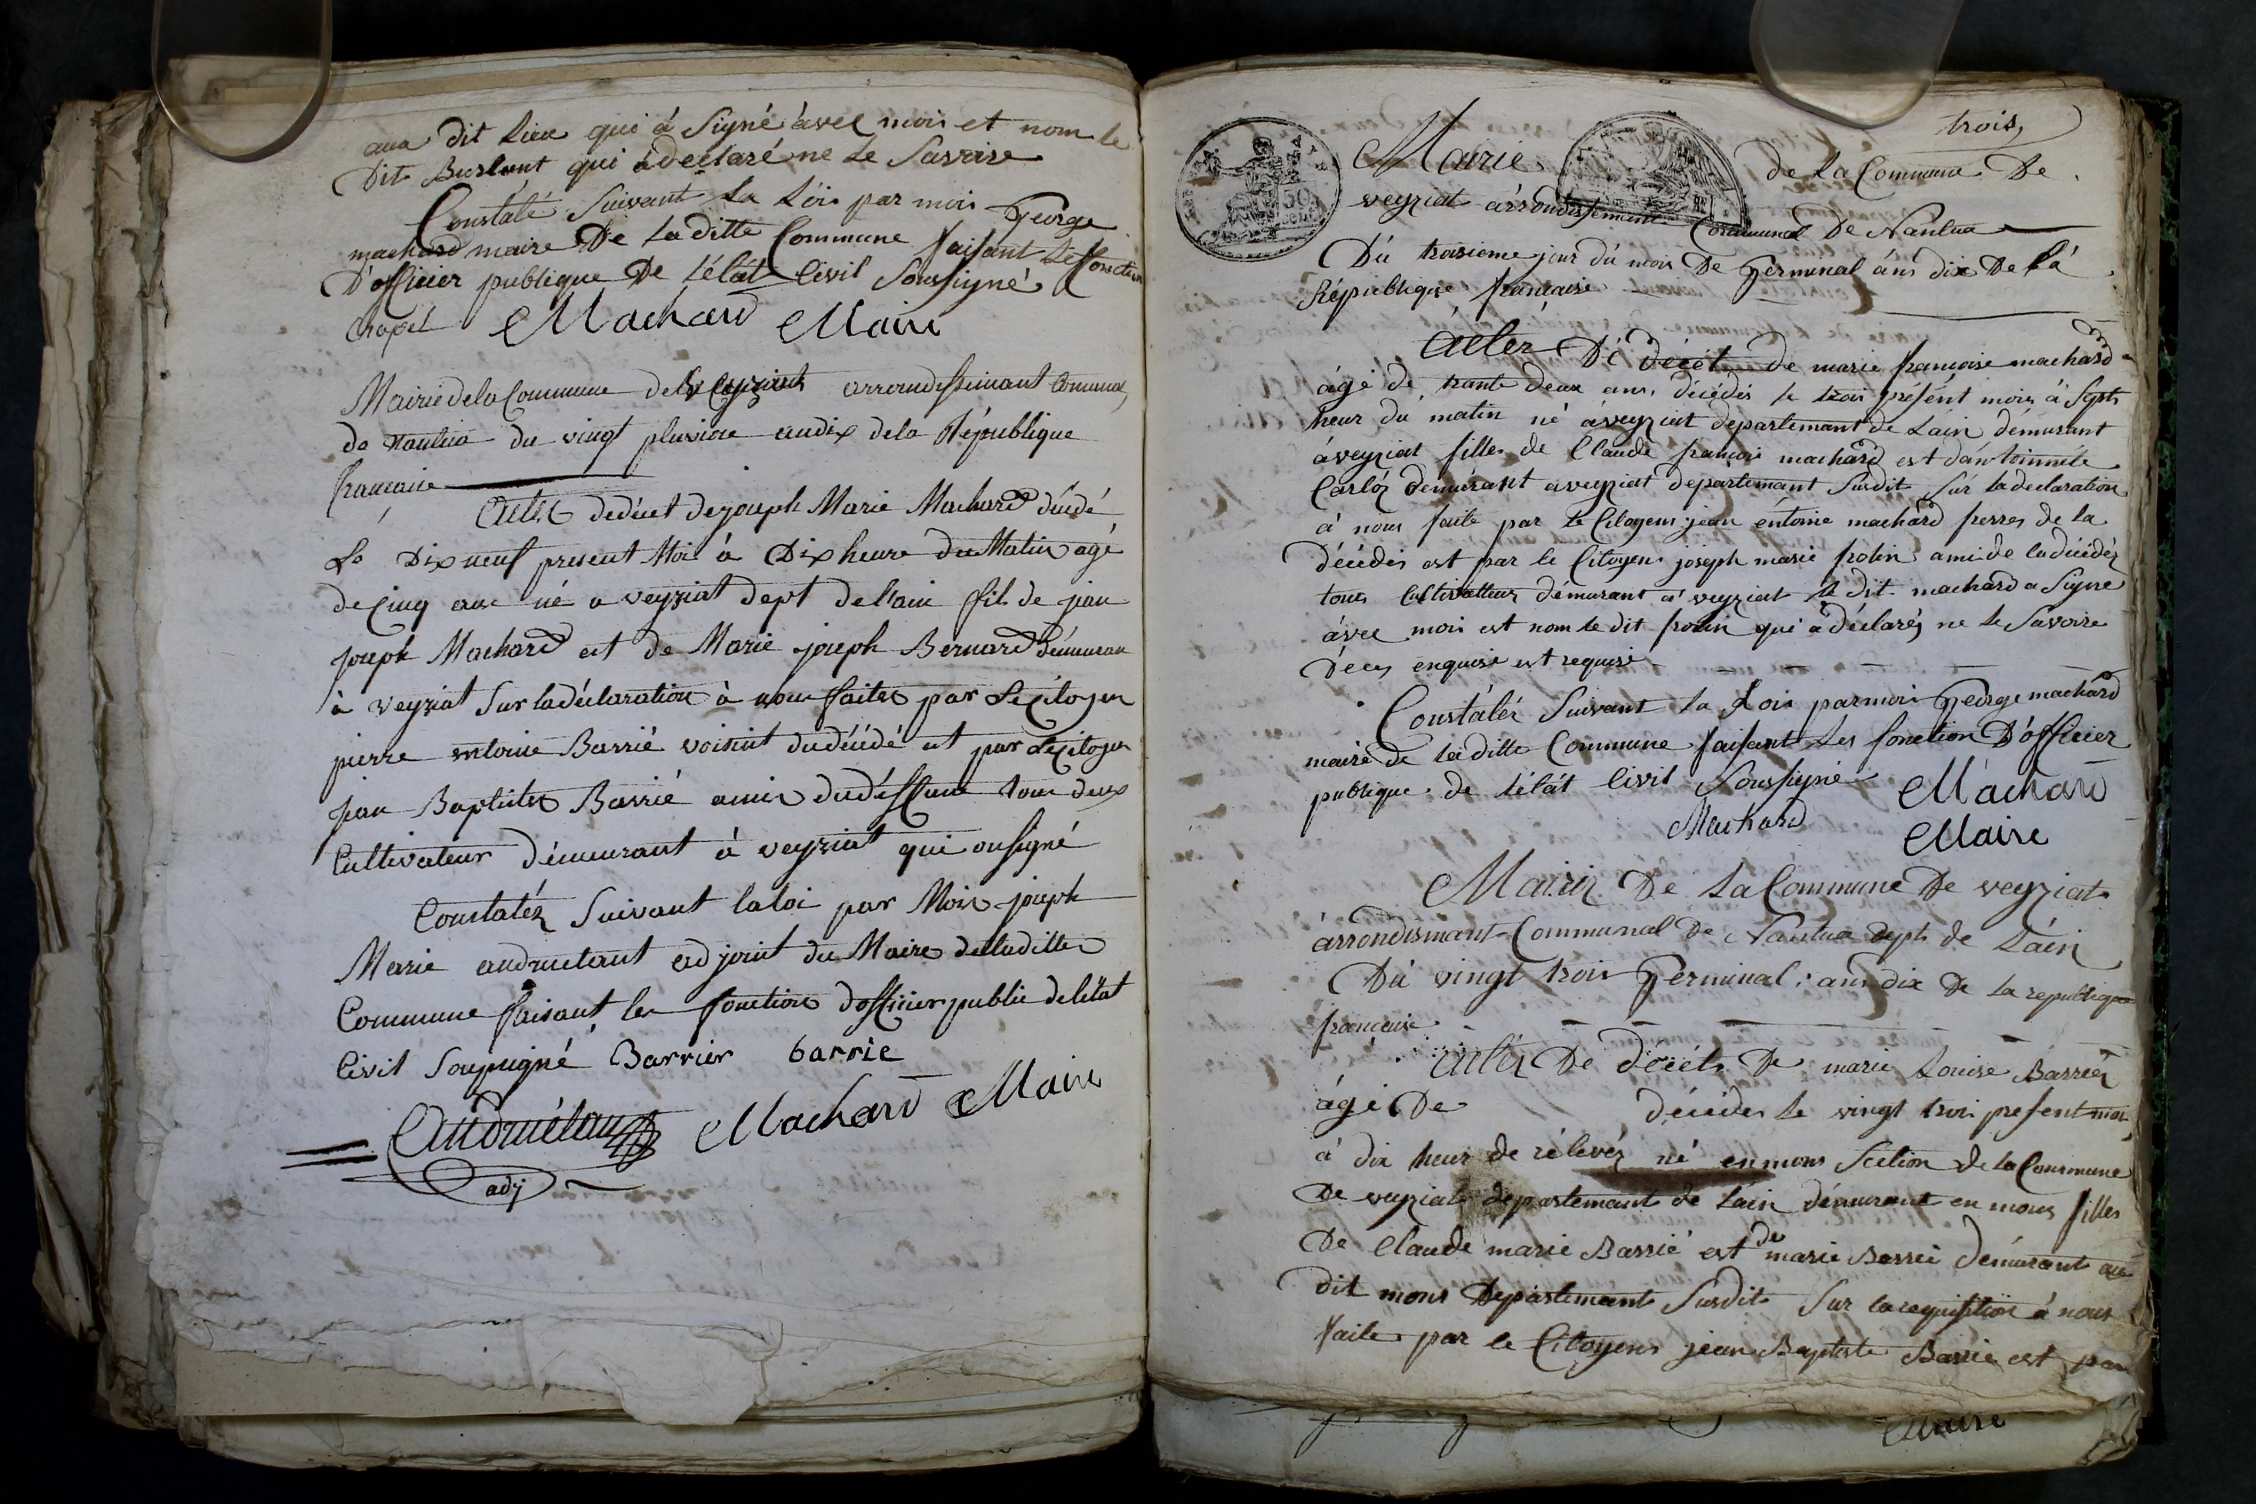 aux dit Lieu qui à Signé àvec mois et nom le
Dit Burlunt qui à déclaré ne Le Savoire
Constaté Suivant La Lois par mois George
machard maire De La ditte Commune faisant Le fonction
D'officier publique De L'état Civil Soussigné
Chapel Machard Maire
Mairie de la Commune de Veyziat arrondissimant Comunal
de Nantua du vingt pluviose an dix de la République
française
Acte de décet de joseph Marie Machard décédé
Le Dix neuf present Moi à Dix heure du Matin agé
de Cinq ans né a veyziat dept de l'ain fil de jean
joseph Machard et de Marie joseph Bernard démuran
à veyziat Sur la déclaration à nous faites par Le Citoyen
pierre entoine Barrié voisint du décédé et par Le Citoyen
jean Baptiste Barrié amis du déffunt tous deux
Cultivateur démeurant à veyziat qui onsigné
Constatéz Suivant la loi par Mois joseph
Marie andruetant adjoint du Maire de laditte
Commune faisant les fonction d'officier public de l'état
Civil Soussigné Barrier barrie
Machard Maire
adj
trois
Mairie de La Commune De
veyziat arrondissement Communal De Nantua
Du troisieme jour du mois De Germinal ans dix De La
République française
Actez De décét de marie françoise machard
ágé de trante deux ans, décédés le trois présént mois à Sept
heur du matin né à veyziat départemant de Láin démurant
á veyziat filles de Claude françois machard est d'antoinnete
Carléz demurant a veyziat departemant Susdit Sur la declaration
a nous faite par Le Citoyens jean éntoine machard frerres de la
décédés est par le Citoyens joséph marie frolin ami de la décédéz
tous Cultivatteur démurant a veyziat le dit machard a Signé
ávec mois est nom le dit frolin qui á déclaréz ne le Savoire
De ces enquiré est requiré
Constátéz Suivant La Lois par mois George machard
maire de laditte Commune faisant Les fonction D'officier
publique de L'état Civil Soussigné Machard
Machard Maire
Mairie De La Commune De veyziat
árrondismant Communal De Nantua dept de Láin
Du vingt trois Germinal ans dix De la republique
française
Actéz De décét De marie Louise Barriéz
ágé De décédés le vingt trois present mois
à dix heur de rélevéz né en mons Scétion de la Commune
De veyziat départemant de Láin démurant en mons filles
De Claude marie Barrié est de marie Barrié démurant au
dit mons Départemant Susdit Sur la requisition à nous
faite par le Citoyens jean Baptiste Barrié est par
Maire